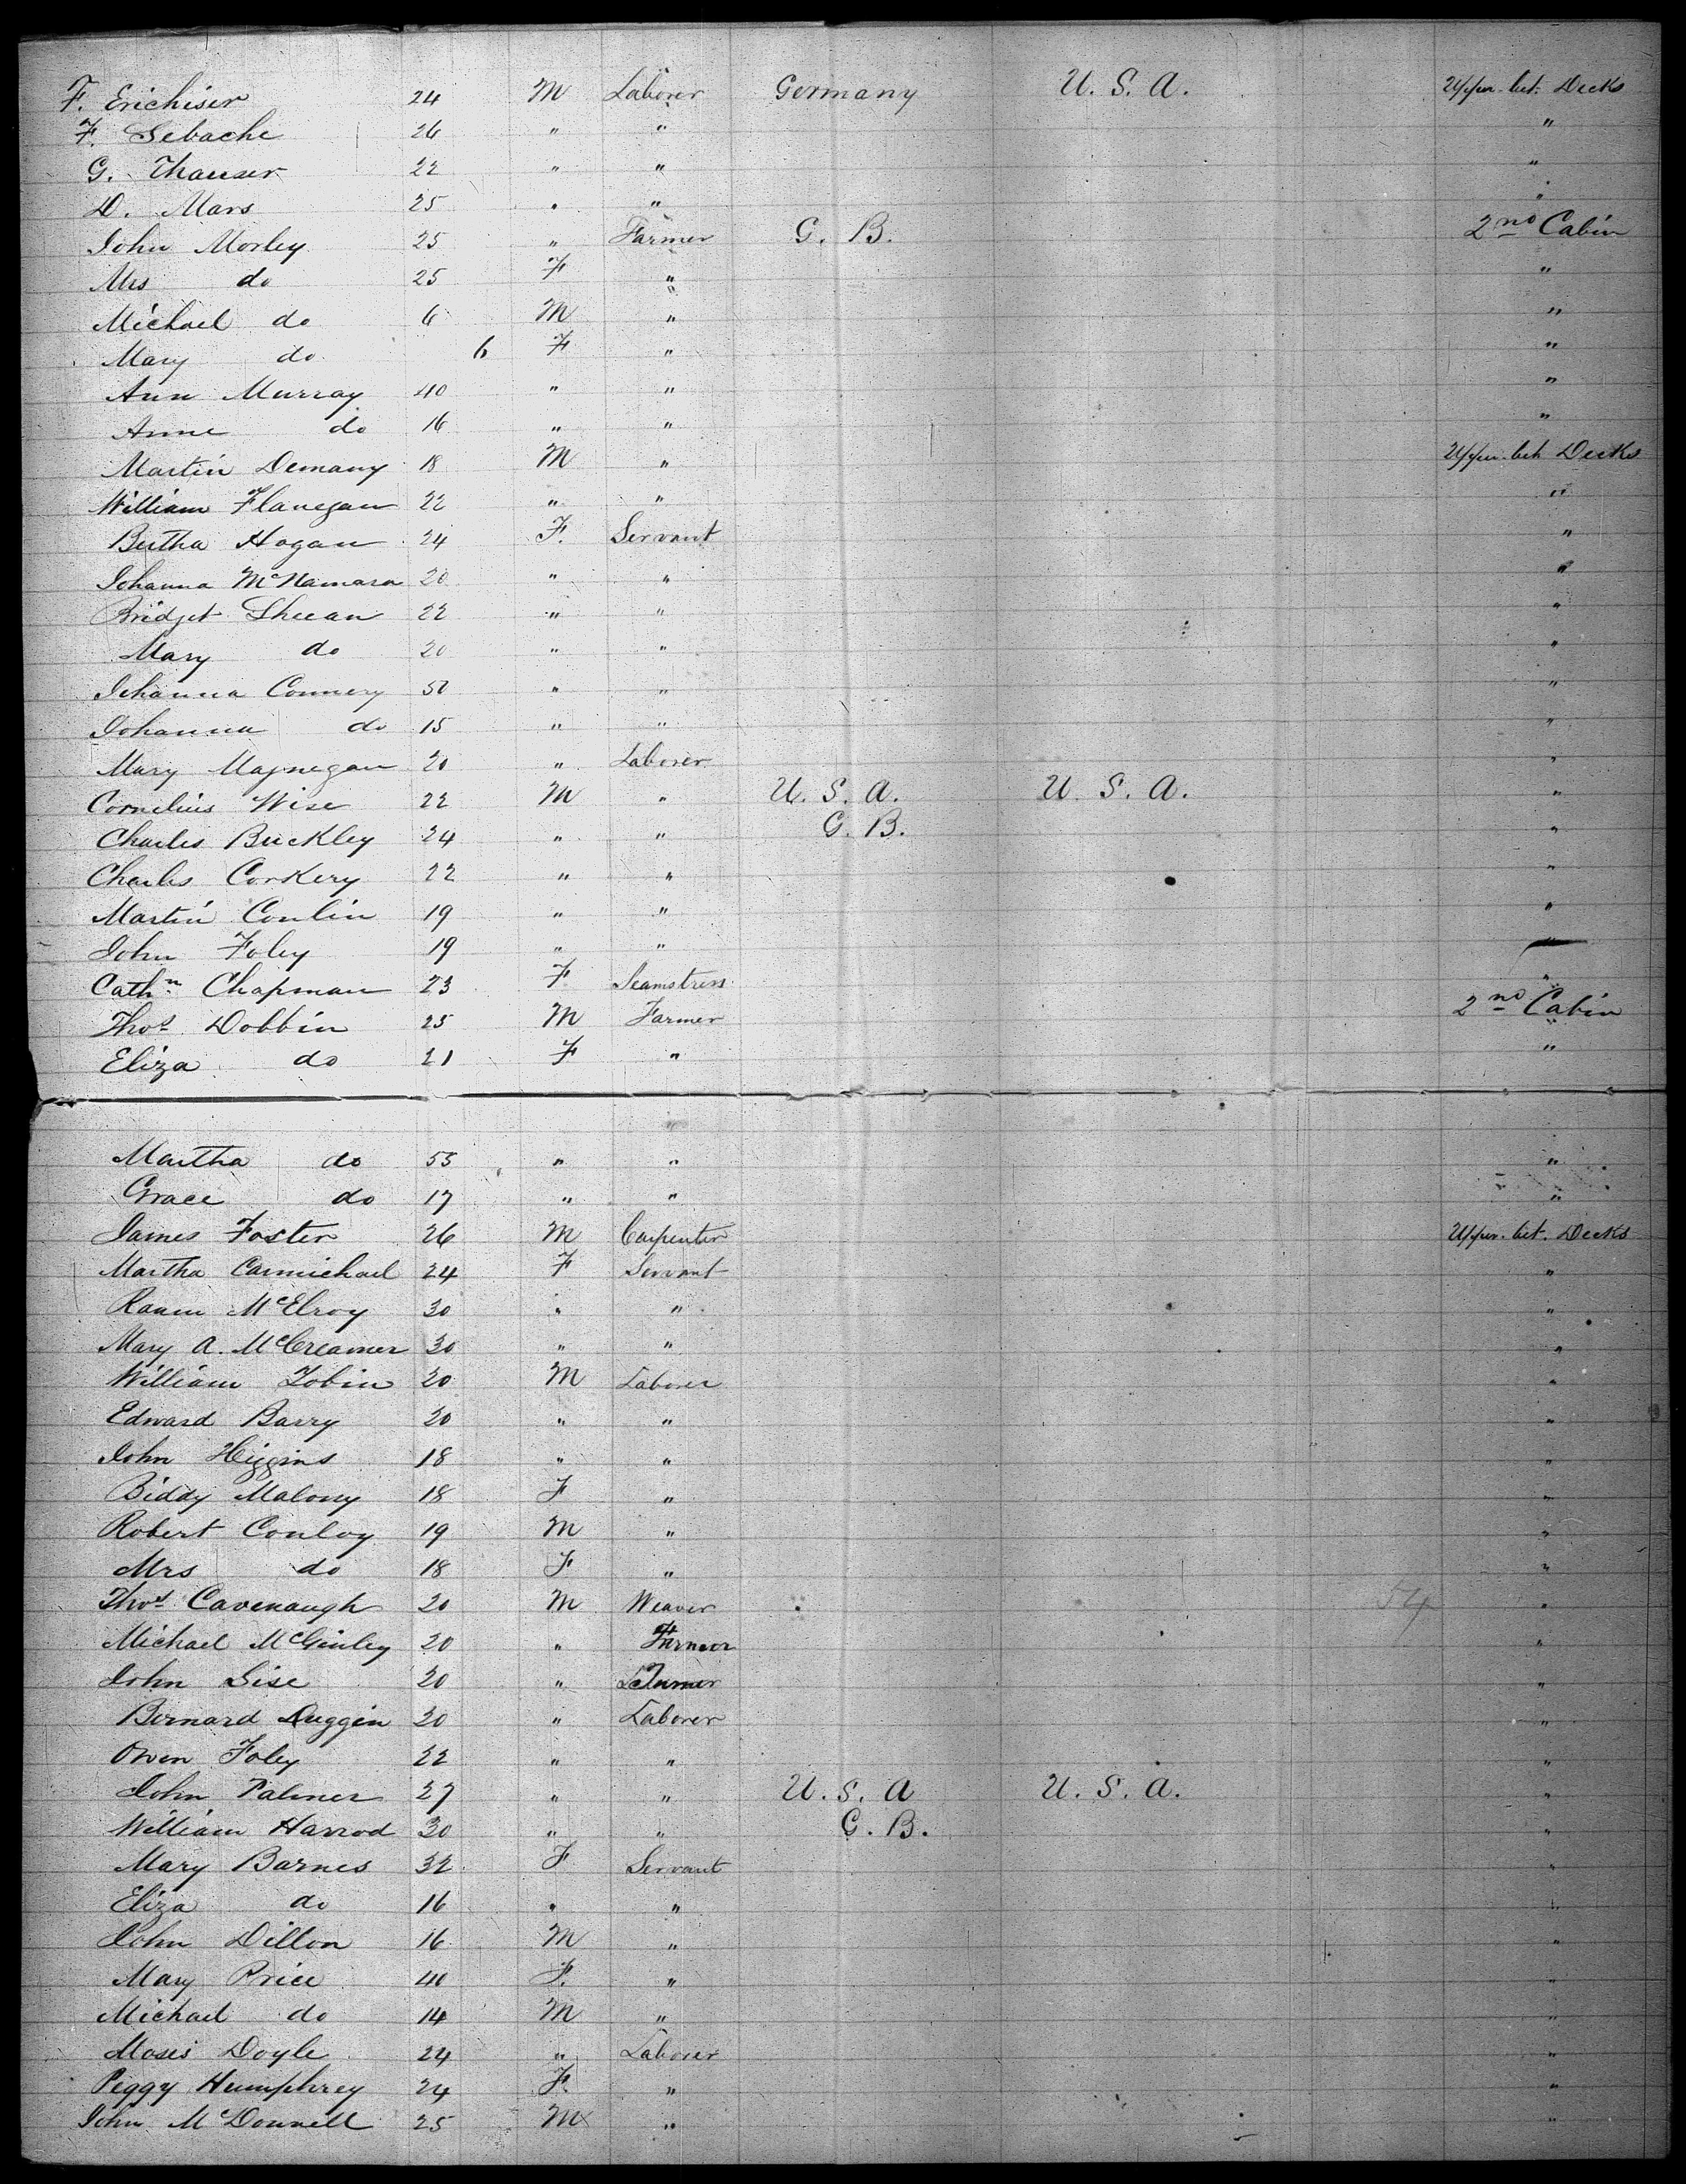 F. Erichiser 24 M Laborer Germany U. S. A. Upper bet. Decks
F. Sebache 26 " " "
G. Thauser 22 " " "
D. Mars 25 " " "
John Morley 25 " Farmer G. B. 2nd Cabin
Mrs do 25 F " "
Michael do 6 M " "
Mary do 6 F " "
Ann Murray 40 " " "
Anne do 16 " " "
Martin Demany 18 M " Upper bet Decks
William Flanegan 22 " " "
Bertha Hogan 24 F. Servant "
Johanna McNamara 20 " " "
Bridget Sheean 22 " " "
Mary do 20 " " "
Johanna Connery 50 " " "
Johanna do 15 " " "
Mary Magnegan 20 " Laborer "
Cornelius Wise 22 M " U. S. A. U. S. A. "
Charles Buckley 24 " " G. B. "
Charles Corkery 22 " " "
Martin Conlin 19 " " "
John Foley 19 " " "
Cathn Chapman 23 F Seamstress "
Thos Dobbin 25 M Farmer 2nd Cabin
Eliza do 21 F " "
Martha do 53 " " "
Grace do 17 " " "
James Foster 26 M Carpenter Upper bet. Decks
Martha Carmichael 24 F Servant "
McElroy 30 " " "
Mary A. McCreamer 30 " " "
William Tobin 20 M Laborer "
Edward Barry 20 " " "
John Higgins 18 " " "
Biddy Malony 18 F " "
Robert Conloy 19 M " "
Mrs do 18 F " "
Thos Cavenaugh 20 M Weaver 54 "
Michael McGinley 20 " "
John Sise 20 " "
Bernard Duggin 20 " Laborer "
Owen Foley 22 " " "
John Palmer 27 " " U. S. A U. S. A. "
William Harrod 30 " " G. B. "
Mary Barnes 32 F Servant "
Eliza do 16 " " "
John Dillon 16 M " "
Mary Price 40 F. " "
Michael do 14 M " "
Moses Doyle 24 " Laborer "
Peggy Humphrey 24 F. " "
John McDonnell 25 M " "